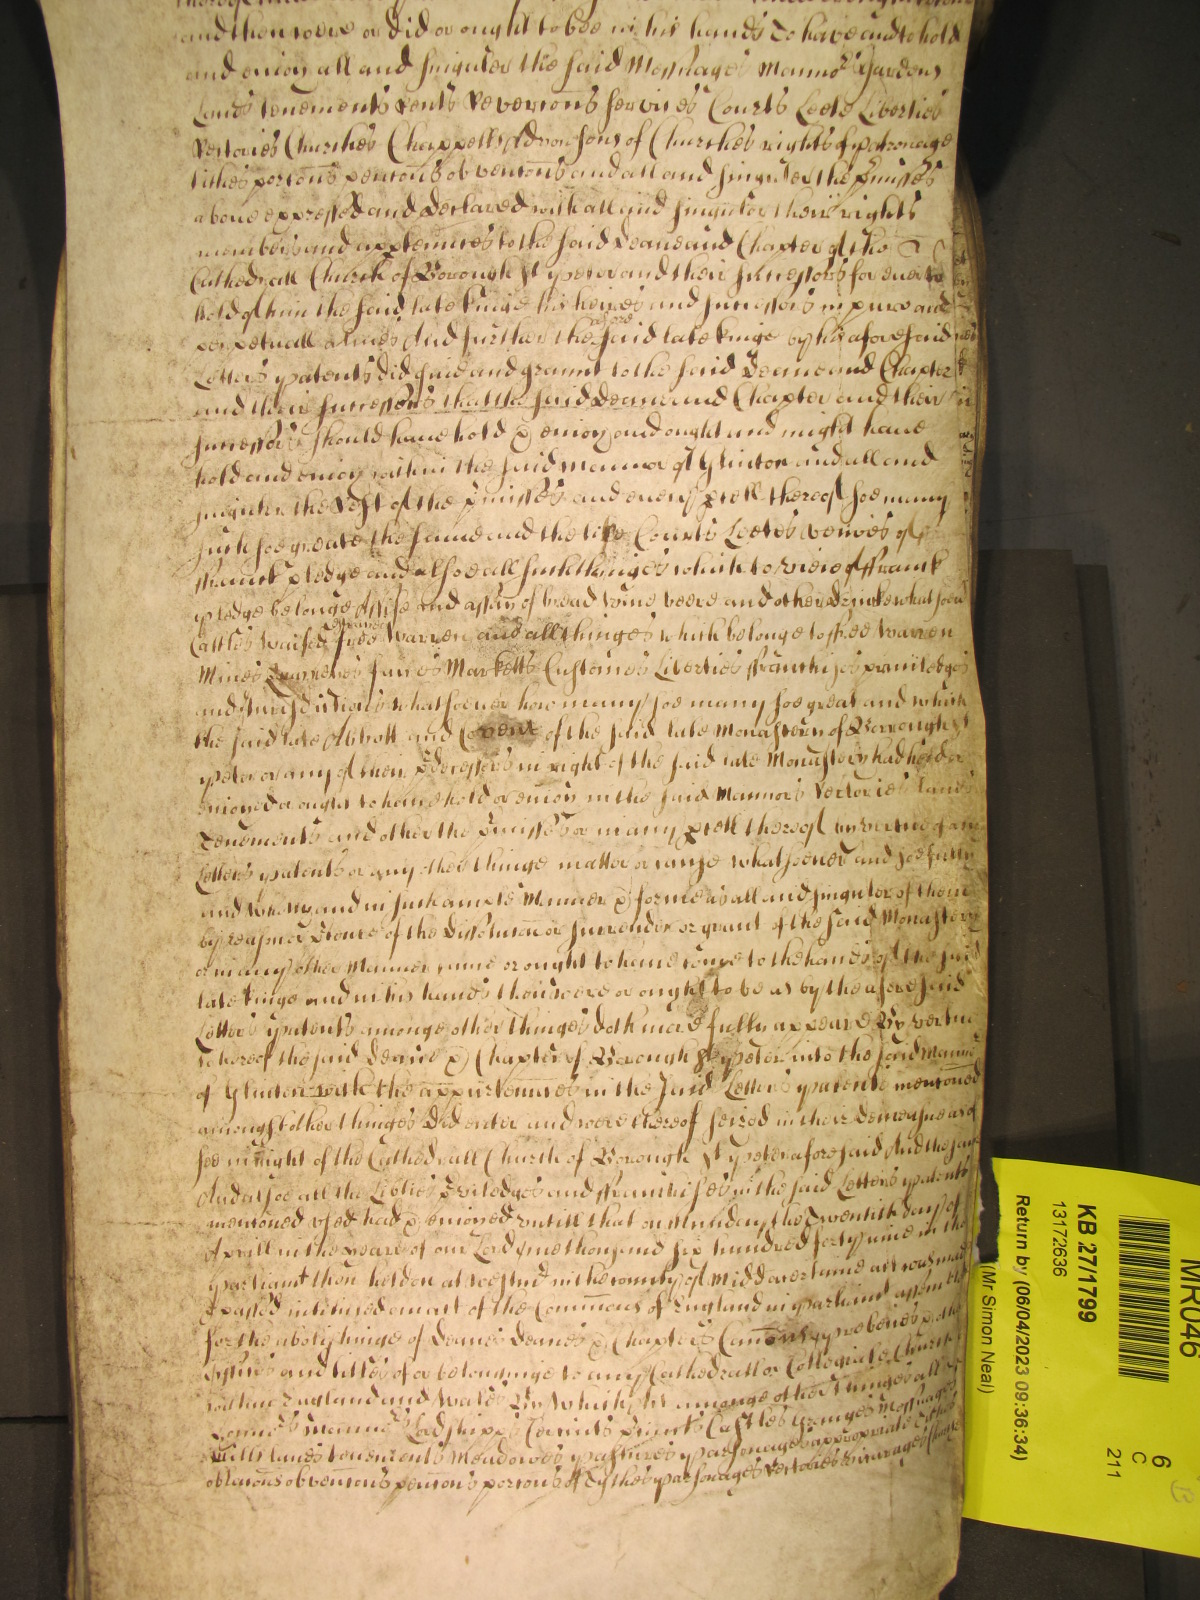 and then were or did or ought to bee in his hands To have and to hold
and enioy all and singuler the said Messuages Mannors Gardens
Lands tenements rents Revercons services Courts Leets Liberties
Rectories Churches Chappells Advowsons of Churches rights of patronage
tithes porcons pencons obvencons and all and singuler the pmisses
above expressed and declared with all and singuler their rights
members and apptenncs to the said Deane and Chapter of the
Cathedrall Church of Borough St peter and their successors for ever to
hold of him the said late kinge his heires and successors in pure and
perpetuall almes And further the said late kinge by his aforesaid
Letters patents did give and graunt to the said Deane and Chapter
and their successors that the said Deane and Chapter and their
successors should have hold & enioy and ought and might have
hold and enioy within the said Mannor of Glinton and all and
singuler the rest of the pmisses and every pcell thereof soe many
such soe greate the same and the like Courts Leetes veiwes of
ffranck pledge and alsoe all such thinges which to view of ffranck
pledge belonge Assise and assay of bread wine beere and other drinke whatsoever
Cattles waifed straied free Warren and all thinges which belonge to free warren
Mines Quarries faires Marketts Customes Liberties ffranchises priviledges
and Jurisdictions whatsoever how many soe many soe great and which
the said late Abbott and Covent of the said late Monastery of Borrough St
peter or any of their pdecessors in right of the said late Monastery had held or
enioyed or ought to have hold or enioy in the said Mannors Rectories lands
Tenements and other the pmisses or in any pcell thereof by vertue of any
Letters patents or any other thinge matter or cause whatsoever and soe fully
and wholly and in such ample Manner & forme as all and singuler of them
by reason or ptence of the dissolucon or surrender or grant of the said Monastery
or in any other Manner came or ought to have come to the hands of the said
late kinge and in his hands then were or ought to be as by the aforesaid
Letters patents amonge other thinges doth more fully appeare By vertue
whereof the said Deane & Chapter of Borough St peter into the said Mannor
of Glinton with the appurtenances in the said Letters patents mentoned
amongst other thinges did enter and were thereof seized in their demeasne as of
fee in right of the Cathedrall Church of Borough St peter aforesaid And the same
And alsoe all the Libties priviledges and ffranchises in the said Letters patents
mentoned used had & enioyed untill that on Munday the Twentith day of
Aprill in the yeare of our Lord one thousand six hundred forty nine in the
parliamt then holden at Westmr in the county of Midd a certaine act was made
& passed intituled an act of the Commons of England in parliamt assembled
for the abolishinge of Deanes Deanes & Chapters Canons prebends & other
offices and titles of or belonginge to any Cathedrall or Collegiate Church
within England and Wales By which Act amonge other thinges all
Honnors Mannors Lordshipps Circuits precincts Castles Granges Messuages
Mills lands tenements Meadowes pastures parsonages appropriate tithes
oblacons obvencons pencons porcons of Tythes parsonages Rectories vicarages Churches
MR046
6
C
211
KB 27/1799
13172636
Return by (06/04/2023 09:36:34)
(Mr Simon Neal)